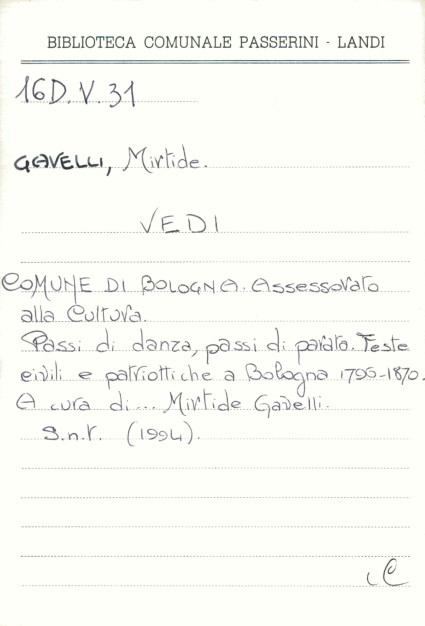 BIBLIOTECA COMUNALE PASSERINI - LANDI
16D.V.31
GAVELLI, Mirtide.
VEDI
COMUNE DI BOLOGNA. Assessorato
alla Cultura.
Passi di danza, passi di parata. Feste
civili e patriottiche a Bologna 1796-1870.
A cura di... Mirtide Gavelli.
S.n.t. (1994).